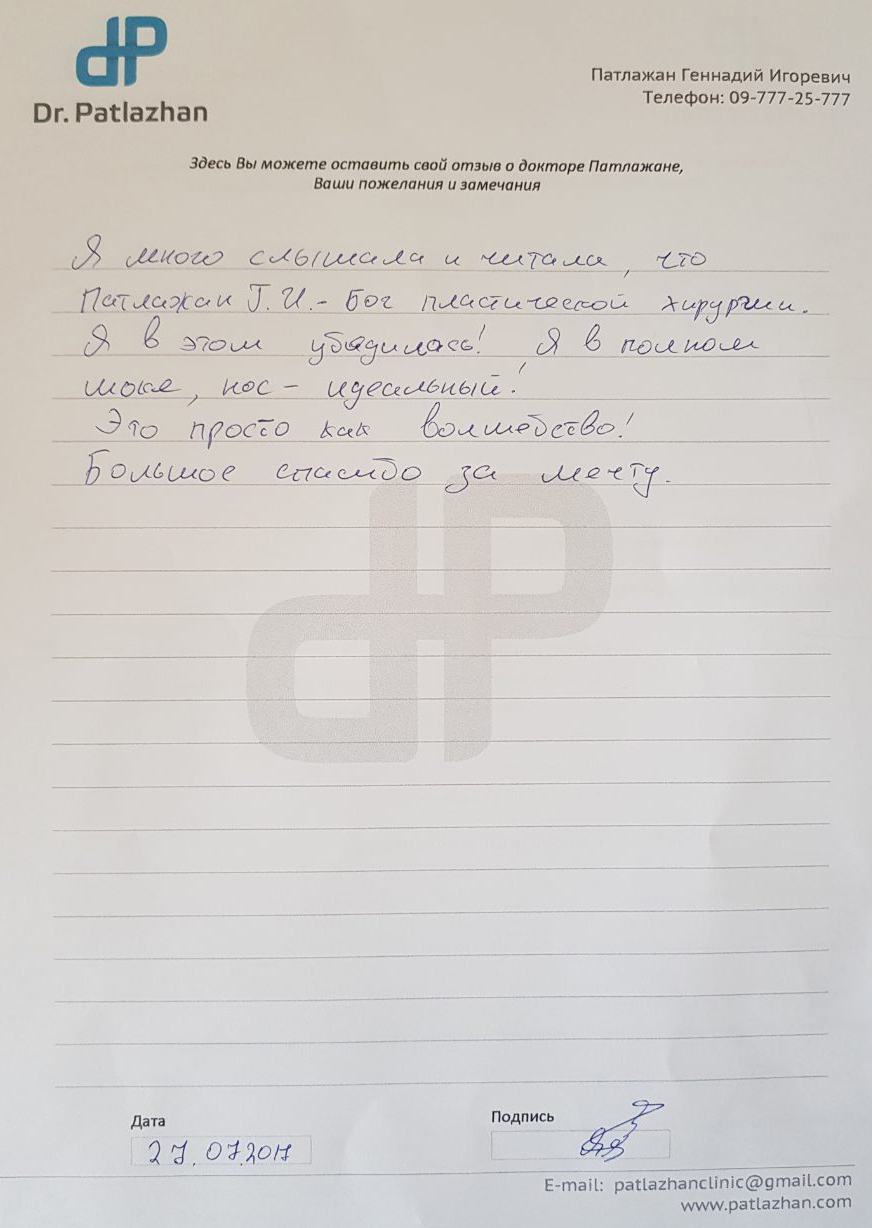 dP
Dr. Patlazhan
Патлажан Геннадий Игоревич
Телефон: 09-777-25-777
Здесь Вы можете оставить свой отзыв о докторе Патлажане,
Ваши пожелания и замечания
Я много слышала и читала, что
Патлажан Г.И. - Бог пластической хирургии.
Я в этом убедилась! Я в полном
шоке, нос - идеальный!
Это просто как волшебство!
Большое спасибо за мечту.
dP
Дата
Подпись
27.07.2017
E-mail: patlazhanclinic@gmail.com
www.patlazhan.com